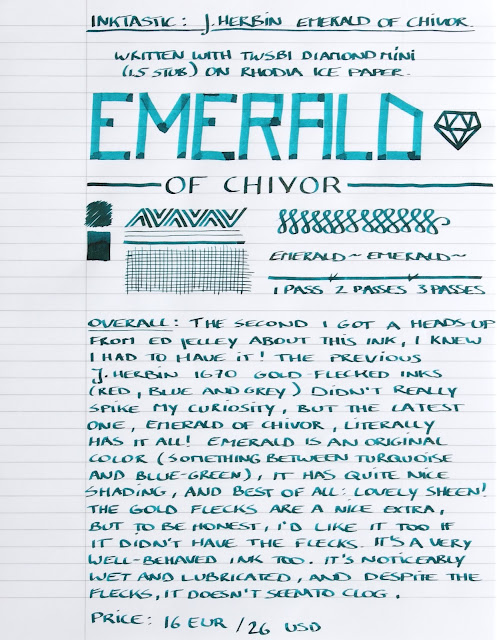 INKTASTIC: J.HERBIN EMERALD OF CHIVOR.
WRITTEN WITH TWSBI DIAMOND MINI
(1.5 STUB) ON RHODIA ICE PAPER.
EMERALD
OF CHIVOR
EMERALD ~ EMERALD ~
1 PASS 2 PASSES 3 PASSES
OVERALL: THE SECOND I GOT A HEADS-UP
FROM ED JELLEY ABOUT THIS INK, I KNEW
I HAD TO HAVE IT! THE PREVIOUS
J.HERBIN 1670 GOLD-FLECKED INKS
(RED, BLUE AND GREY) DIDN'T REALLY
SPIKE MY CURIOSITY, BUT THE LATEST
ONE, EMERALD OF CHIVOR, LITERALLY
HAS IT ALL! EMERALD IS AN ORIGINAL
COLOR (SOMETHING BETWEEN TURQUOISE
AND BLUE-GREEN), IT HAS QUITE NICE
SHADING, AND BEST OF ALL: LOVELY SHEEN!
THE GOLD FLECKS ARE A NICE EXTRA,
BUT TO BE HONEST, I'D LIKE IT TOO IF
IT DIDN'T HAVE THE FLECKS. IT'S A VERY
WELL-BEHAVED INK TOO. IT'S NOTICEABLY
WET AND LUBRICATED, AND DESPITE THE
FLECKS, IT DOESN'T SEEM TO CLOG.
PRICE: 16 EUR / 26 USD